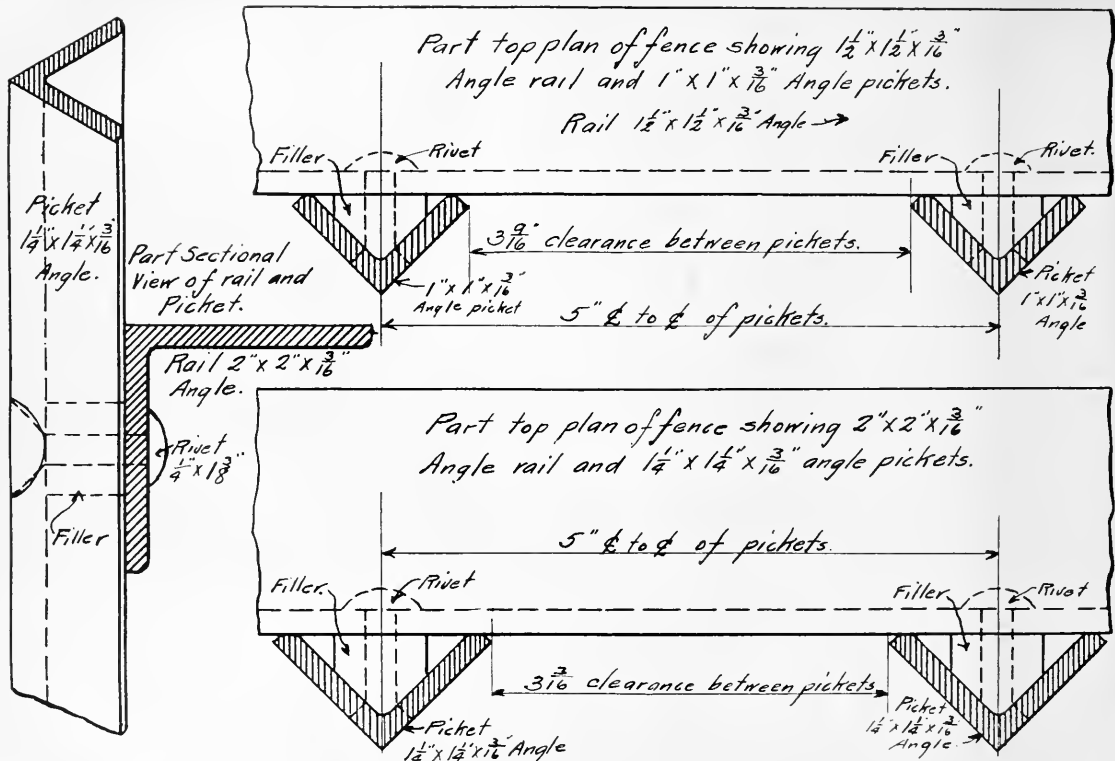 Picket
1 1/4" x 1 1/4" x 3/16"
Angle.
Part Sectional
View of rail and
Picket.
Rail 2" x 2" x 3/16"
Angle.
Rivet
1/4" x 1 3/8"
Filler
Part top plan of fence showing 1 1/2" x 1 1/2" x 3/16"
Angle rail and 1" x 1" x 3/16" Angle pickets.
Rail 1 1/2" x 1 1/2" x 3/16" Angle →
Filler
Rivet
Filler
Rivet.
3 9/16" clearance between pickets.
1" x 1" x 3/16"
Angle picket
Picket
1" x 1" x 3/16"
Angle
5" ℄ to ℄ of pickets.
Part top plan of fence showing 2" x 2" x 3/16"
Angle rail and 1 1/4" x 1 1/4" x 3/16" angle pickets.
5" ℄ to ℄ of pickets.
Filler.
Rivet
Filler
Rivet
clearance between pickets
Picket
1 1/4" x 1 1/4" x 3/16" Angle
Picket
1 1/4" x 1 1/4" x 3/16"
Angle.